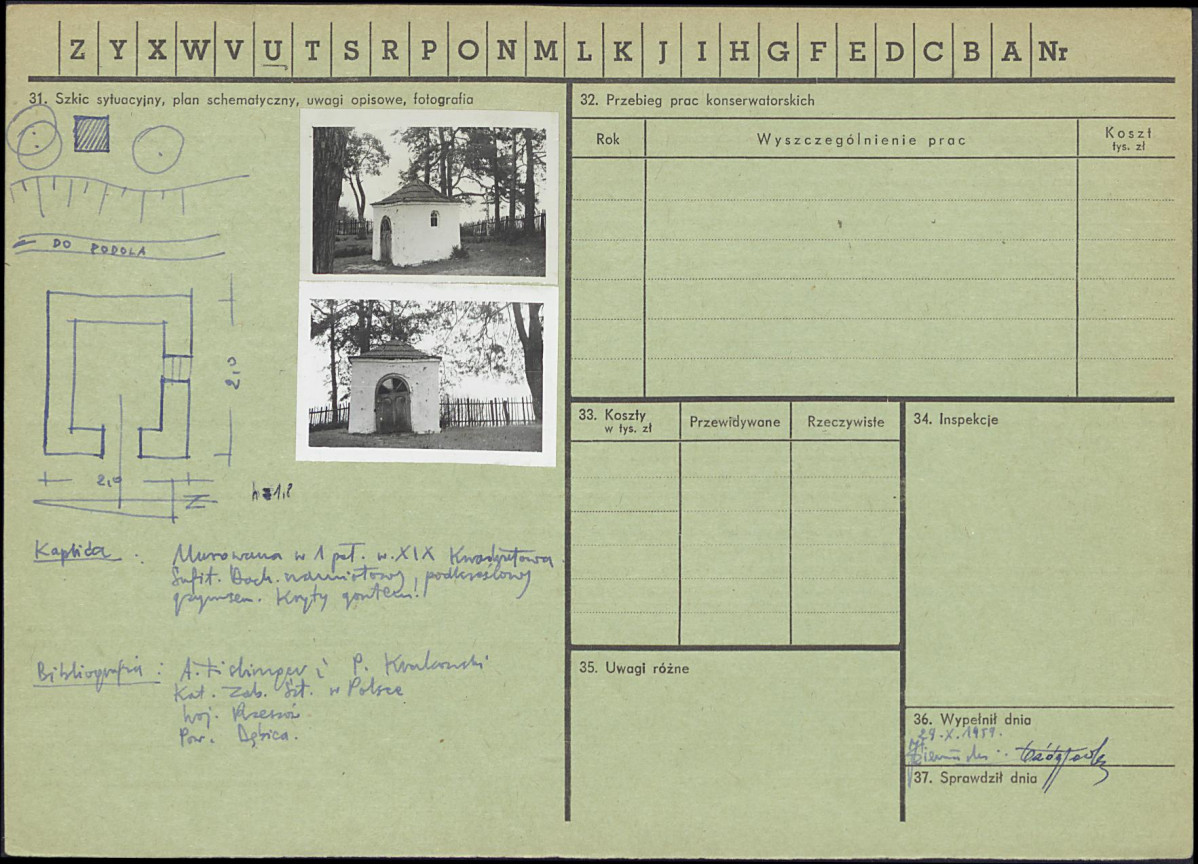 Z Y X W V U T S R P O N M L K J I H G F E D C B A Nr
31. Szkic sytuacyjny, plan schematyczny, uwagi opisowe, fotografia
DO PODOLA
2,0
2,0
N
h=1,8
Kaplica.
Murowana w 1 poł. w. XIX Kwadratowa.
Sufit. Dach namiotowy, podkreślony
gzymsem. Kryty gontem.
Bibliografia:
A. Fischinger i P. Krakowski
Kat. Zab. Szt. w Polsce
woj. Rzeszów.
Pow. Dębica.
32. Przebieg prac konserwatorskich
Rok
Wyszczególnienie prac
Koszt
tys. zł
33. Koszty
w tys. zł
Przewidywane
Rzeczywiste
34. Inspekcje
35. Uwagi różne
36. Wypełnił dnia
29.X.1959.
37. Sprawdził dnia